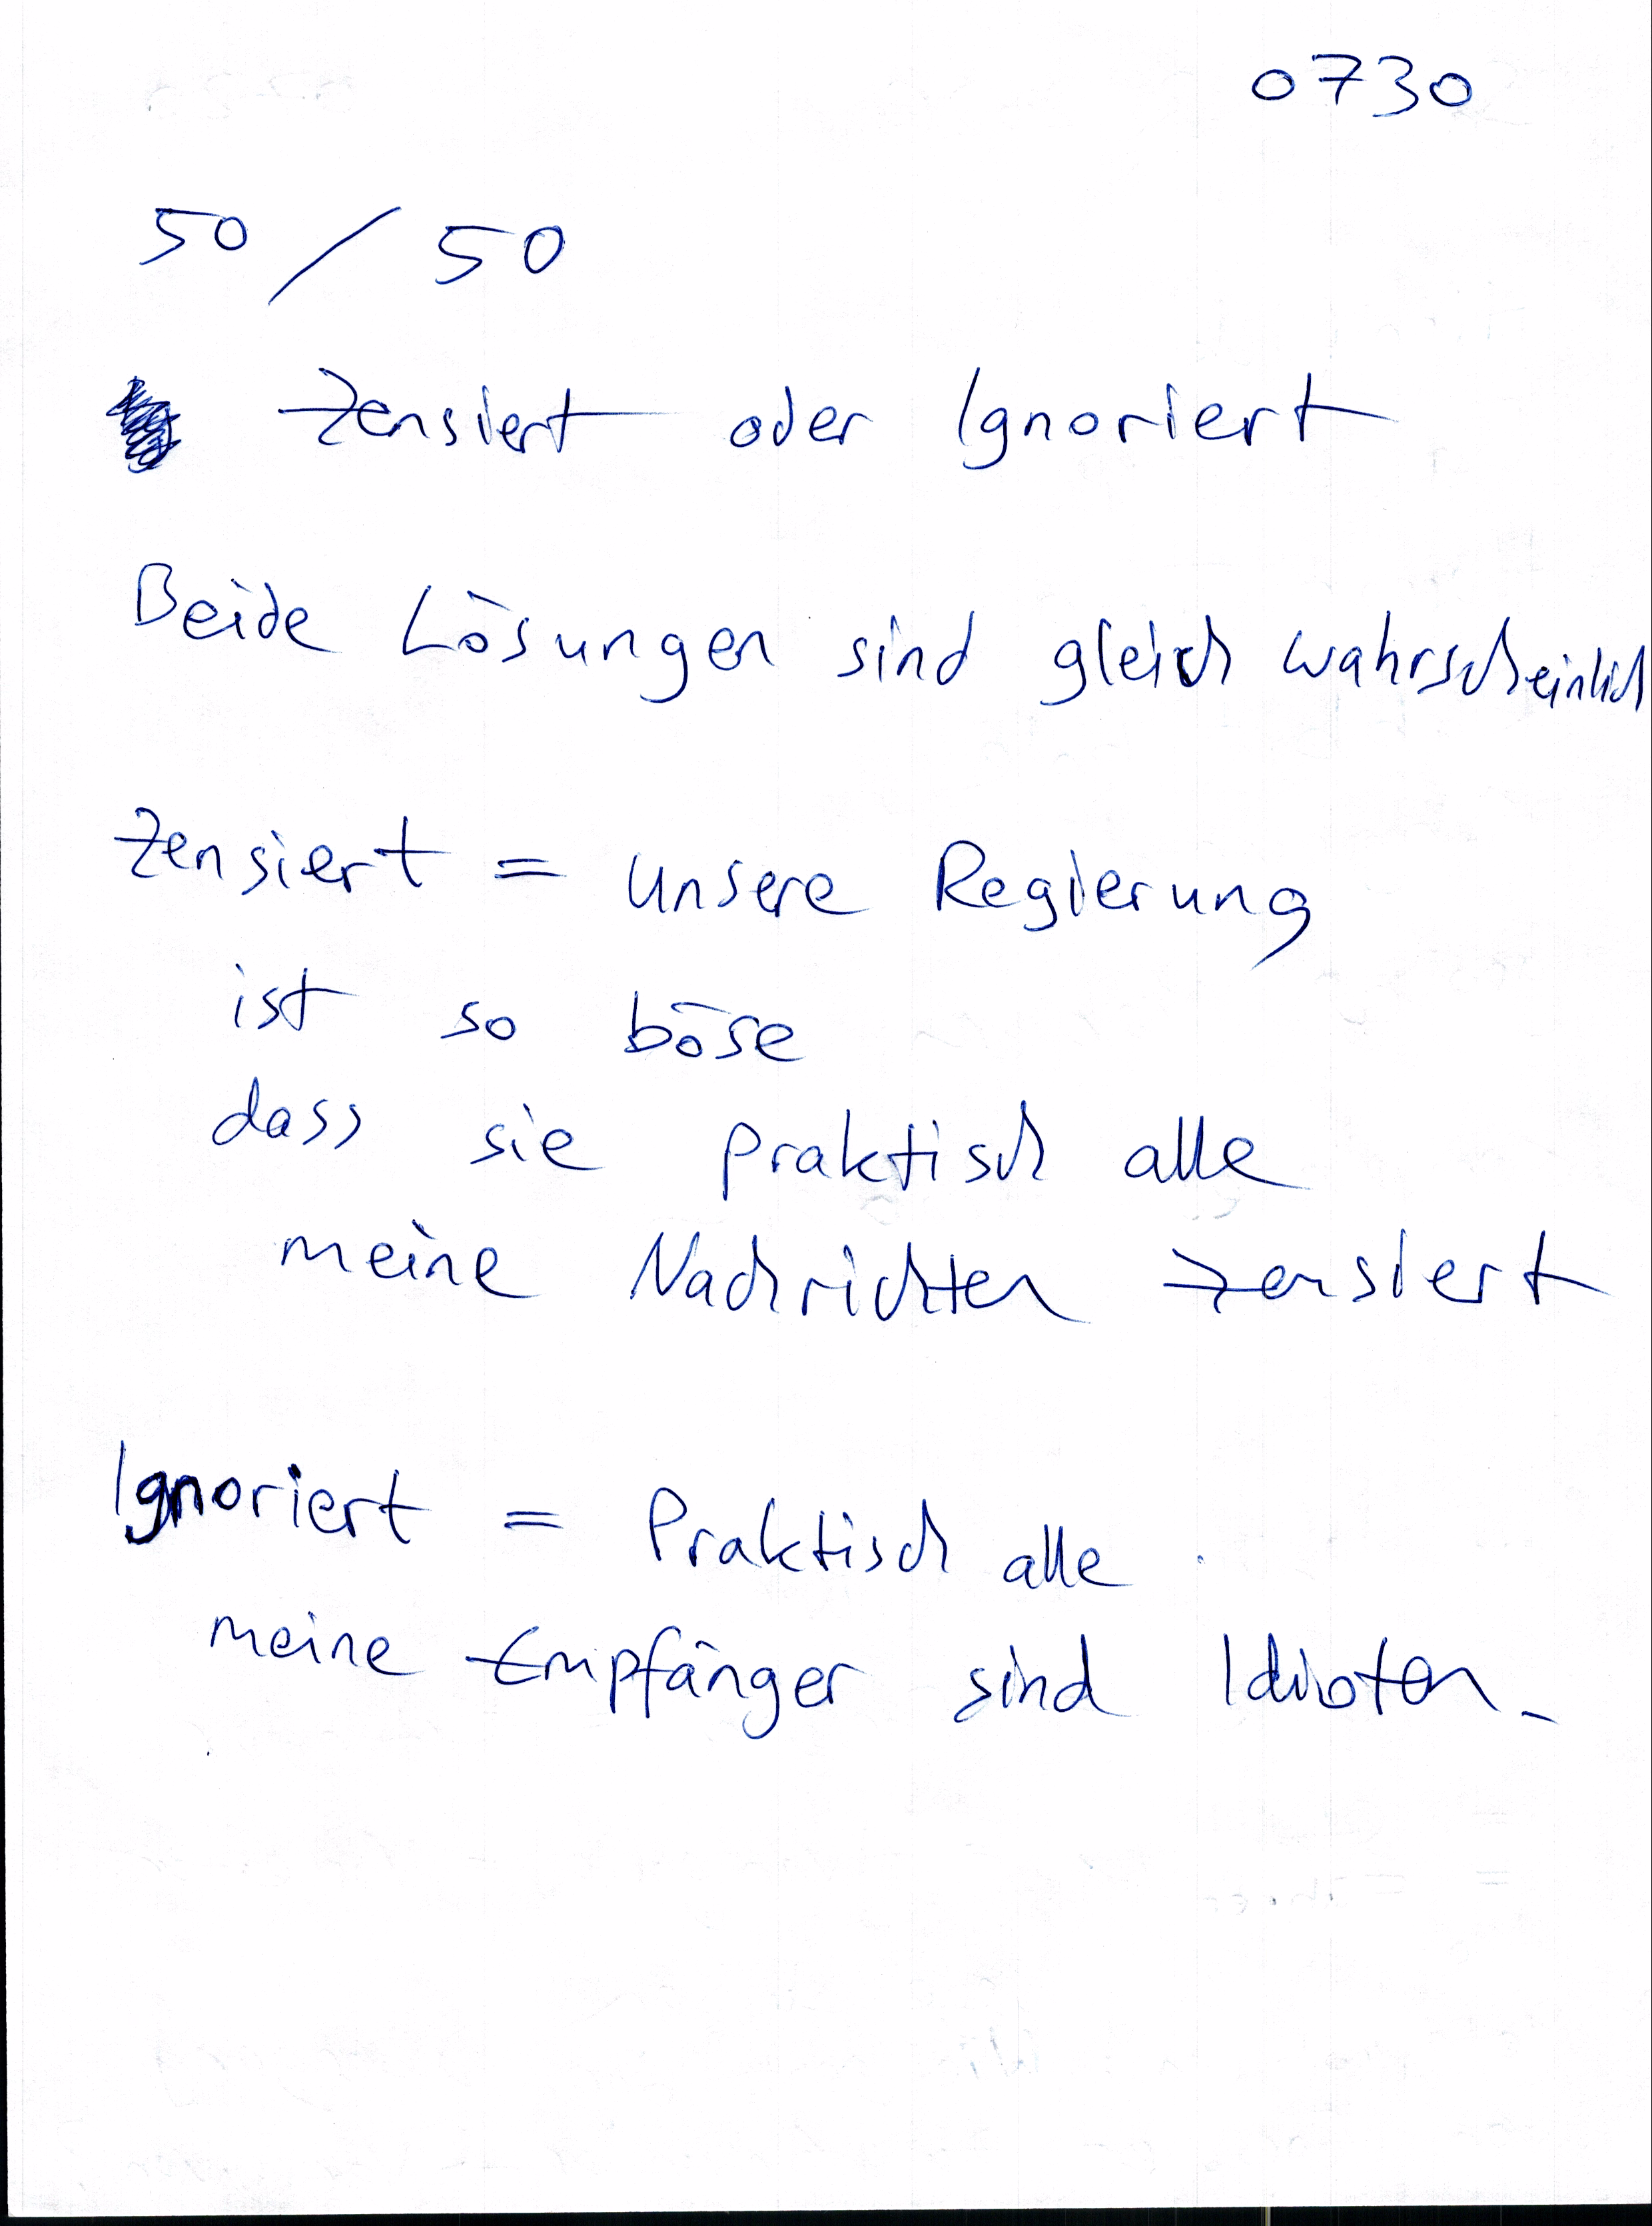 0730
50 / 50
Zensiert oder Ignoriert
Beide Lösungen sind gleich wahrscheinlich
Zensiert = Unsere Regierung
ist so böse
dass sie praktisch alle
meine Nachrichten zensiert
Ignoriert = Praktisch alle
meine Empfänger sind Idioten.